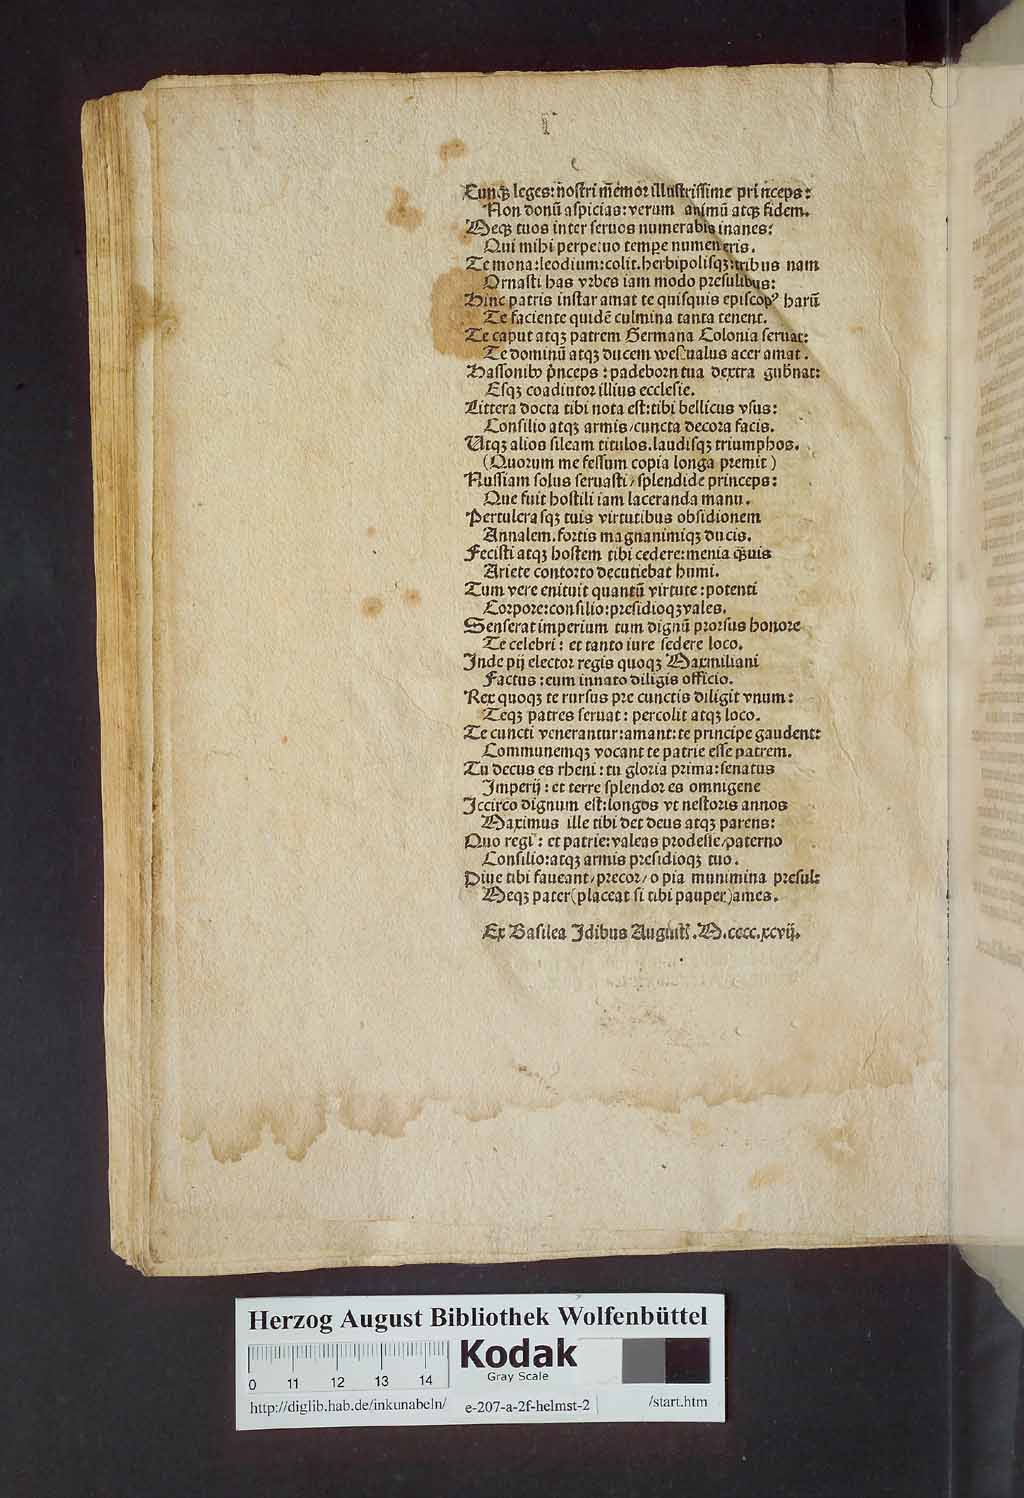 Cunqꝫ leges: nostri mēmor illustrissime princeps:
Non donū aspicias: verum animū atqꝫ fidem.
Meqꝫ tuos inter seruos numerabis inanes:
Qui mihi perpetuo tempe numen eris.
Te mona: leodium: colit. herbipolisqꝫ: tribus nam
Ornasti has vrbes iam modo presulibus:
Hinc patris instar amat te quisquis episcopꝰ harū
Te faciente quidē culmina tanta tenent.
Te caput atqꝫ patrem Germana Colonia seruat:
Te dominū atqꝫ ducem westualus acer amat.
Hassonibꝫ p̄nceps: padeborn tua dextra gub̄nat:
Esqꝫ coadiutor illius ecclesie.
Littera docta tibi nota est: tibi bellicus vsus:
Consilio atqꝫ armis/ cuncta decora facis.
Utqꝫ alios sileam titulos. laudisqꝫ triumphos.
(Quorum me fessum copia longa premit)
Nussiam solus seruasti/ splendide princeps:
Que fuit hostili iam laceranda manu.
Pertulerasqꝫ tuis virtutibus obsidionem
Annalem. fortis magnanimiqꝫ ducis.
Fecisti atqꝫ hostem tibi cedere: menia qꝫuis
Ariete contorto decutiebat humi.
Tum vere enituit quantū virtute: potenti
Corpore: consilio: presidioqꝫ vales.
Senserat imperium tum dignū prorsus honore
Te celebri: et tanto iure sedere loco.
Inde pij elector regis quoqꝫ Maximiliani
Factus: eum innato diligis officio.
Rex quoqꝫ te rursus pre cunctis diligit vnum:
Teqꝫ patres seruat: percolit atqꝫ loco.
Te cuncti venerantur: amant: te principe gaudent:
Communemqꝫ vocant te patrie esse patrem.
Tu decus es rheni: tu gloria prima: senatus
Imperij: et terre splendor es omnigene
Iccirco dignum est: longos vt nestoris annos
Maximus ille tibi det deus atqꝫ parens:
Quo regi: et patrie: valeas prodesse/ paterno
Consilio: atqꝫ armis presidioqꝫ tuo.
Diue tibi faueant/ precor/ o pia munimina presul:
Meqꝫ pater (placeat si tibi pauper) ames.
Ex Basilea Idibus Augusti. M.cccc.xcvij.
Herzog August Bibliothek Wolfenbüttel
Kodak
Gray Scale
0 11 12 13 14
http://diglib.hab.de/inkunabeln/ e-207-a-2f-helmst-2 /start.htm